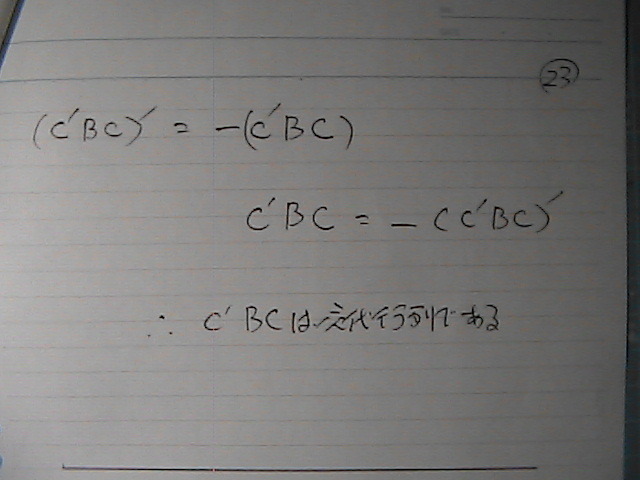 ㉓
(C'BC)' = -(C'BC)
C'BC = - (C'BC)'
∴ C'BCは交代行列である